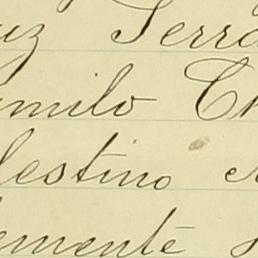 uz Serra
milo Ch
lestino
lemente